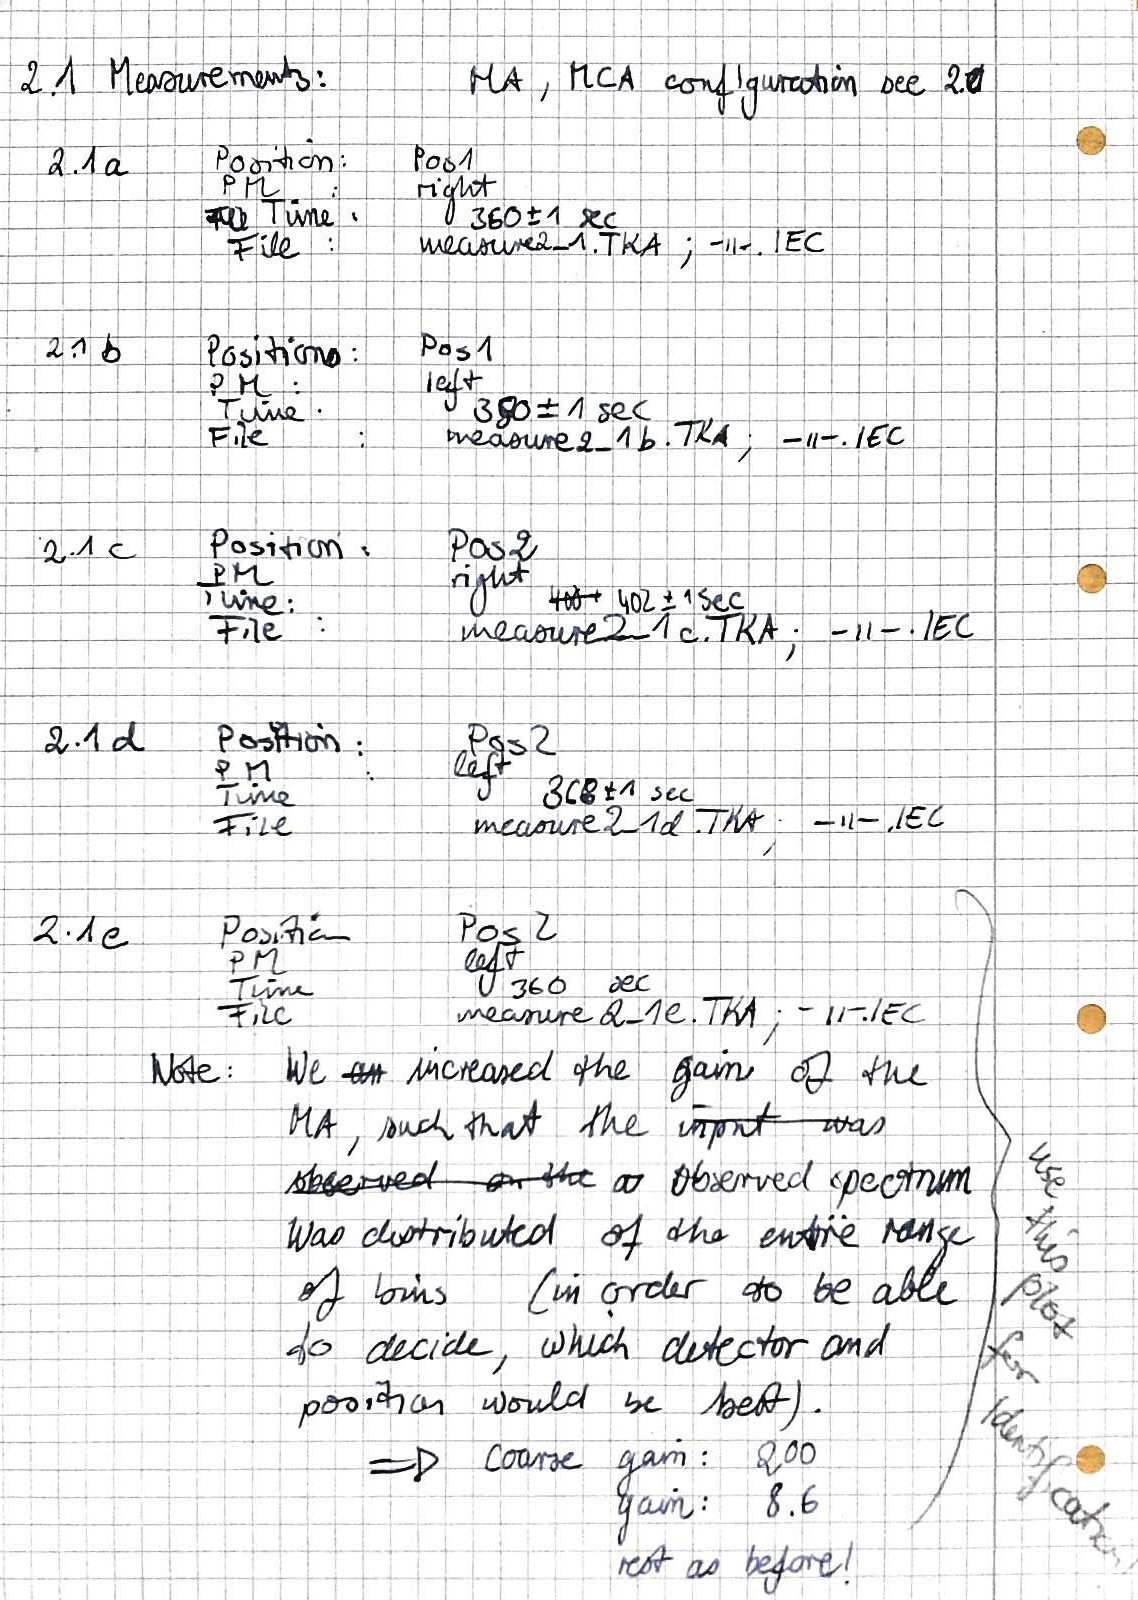 2.1 Measurements: MA, MCA configuration see 2.0
2.1a Position: Pos1
PM : right
Time : 360 ± 1 sec
File : measure2_1.TKA ; -"-. IEC
2.1 b Positions: Pos1
PM : left
Time : 380 ± 1 sec
File : measure2_1b.TKA ; -"-. IEC
2.1 c Position : Pos2
PM right
Time: 400 ± 402 ± 1 sec
File : measure2_1c.TKA ; -"-. IEC
2.1 d Position : Pos2
PM : left
Time 368 ± 1 sec
File measure2_1d.TKA ; -"-. IEC
2.1e Position Pos2
PM left
Time 360 sec
File measure 2_1e.TKA ; -"-. IEC
Note: We increased the gain of the
MA, such that the input was
observed on the observed spectrum
was distributed of the entire range
of bins (in order to be able
to decide, which detector and
position would be best).
=> coarse gain: 200
gain: 8.6
rest as before!
use this plot for Identification!